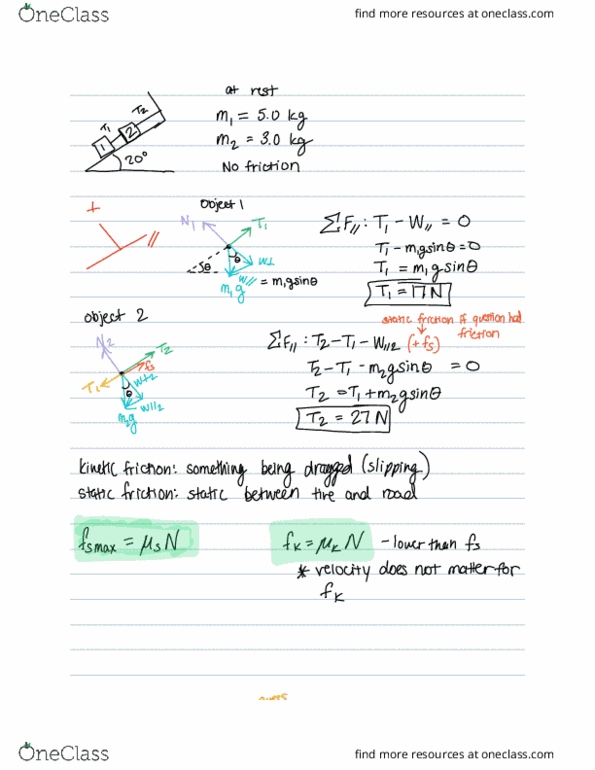 OneClass
find more resources at oneclass.com
at rest
m₁ = 5.0 kg
m₂ = 3.0 kg
No friction
T₁
T₂
1
2
20°
Object 1
⊥
//
N₁
T₁
θ
W⊥
W// = m₁gsinθ
m₁g
ΣF//: T₁ - W// = 0
T₁ - m₁gsinθ = 0
T₁ = m₁gsinθ
T₁ = 17N
object 2
static friction if question had friction
N₂
T₂
fs
T₁
W⊥2
θ
W//2
m₂g
ΣF//: T₂ - T₁ - W//2 (+fs)
T₂ - T₁ - m₂gsinθ = 0
T₂ = T₁ + m₂gsinθ
T₂ = 27N
kinetic friction: something being dragged (slipping)
static friction: static between tire and road
fsmax = μsN
fk = μkN - lower than fs
* velocity does not matter for
fk
OneClass
find more resources at oneclass.com